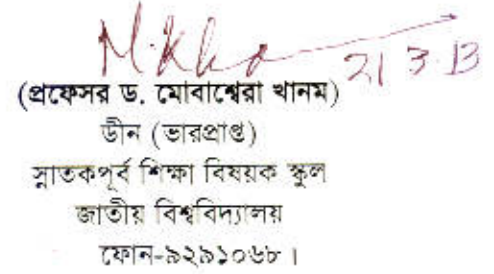 M. Kha 21 3.13
(প্রফেসর ড. মোবাশ্বেরা খানম)
ডীন (ভারপ্রাপ্ত)
স্নাতকপূর্ব শিক্ষা বিষয়ক স্কুল
জাতীয় বিশ্ববিদ্যালয়
ফোন-৯২৯১০৬৮।